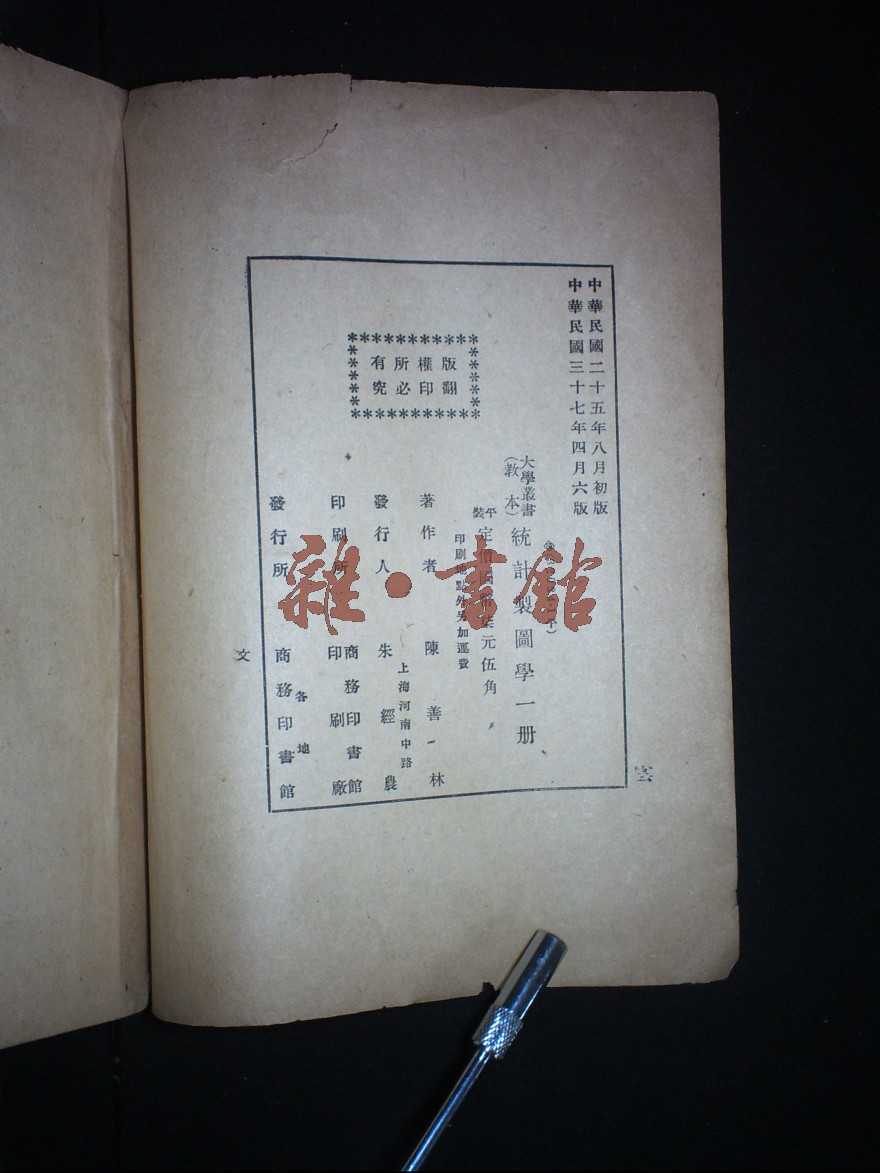 中華民國二十五年八月初版
中華民國三十七年四月六版
大學叢書
(教本)
統計製圖學一册
平裝
元伍角
加運費
版權所有
翻印必究
著作者 陳善林
發行人 朱經農
上海河南中路
印刷所 商務印書館
印刷廠
發行所 商務印書館
各地
文
雜·書館